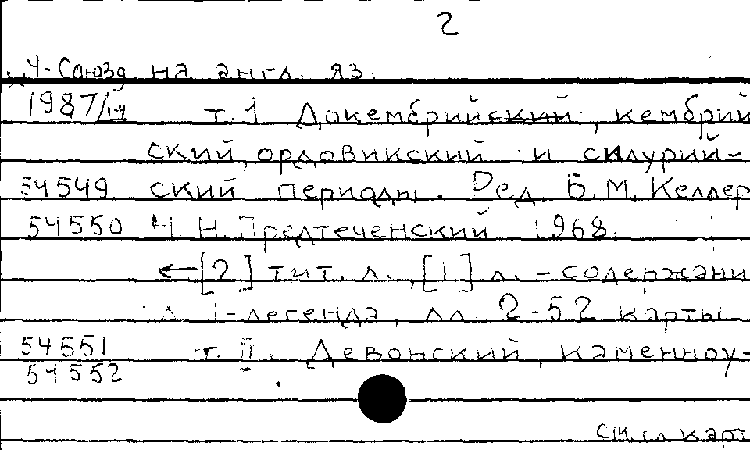 2
на англ. яз.
1987/IV т. 1 Докембрийский, кембрий
ский, ордовикский и силурий-
54549 ский периоды. Ред. Б.М. Келлер
54550 Н.Н. Предтеченский 1968.
←[2] тит. л., [1] л. - содержани
л. 1-легенда, лл. 2-52 карты
54551 т. II. Девонский, каменноу-
54552
см. сл. карт